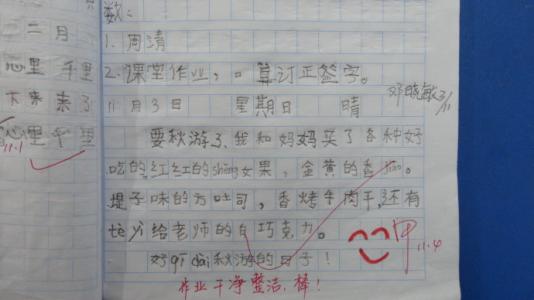 数:
1. 周清
2. 课堂作业,口算订正签字。
二月
心里 千里
下来 来了
心里 千里
11.1
11月3日 星期日 晴
邓晓敏 3/11
要秋游了,我和妈妈买了各种好
吃的,红红的shèng女果,金黄的香jiāo。
提子味的方吐司,香烤牛肉干,还有
tè yì给老师的白巧克力。
好qī dài秋游的日子!
甲 11.4
作业干净整洁,棒!